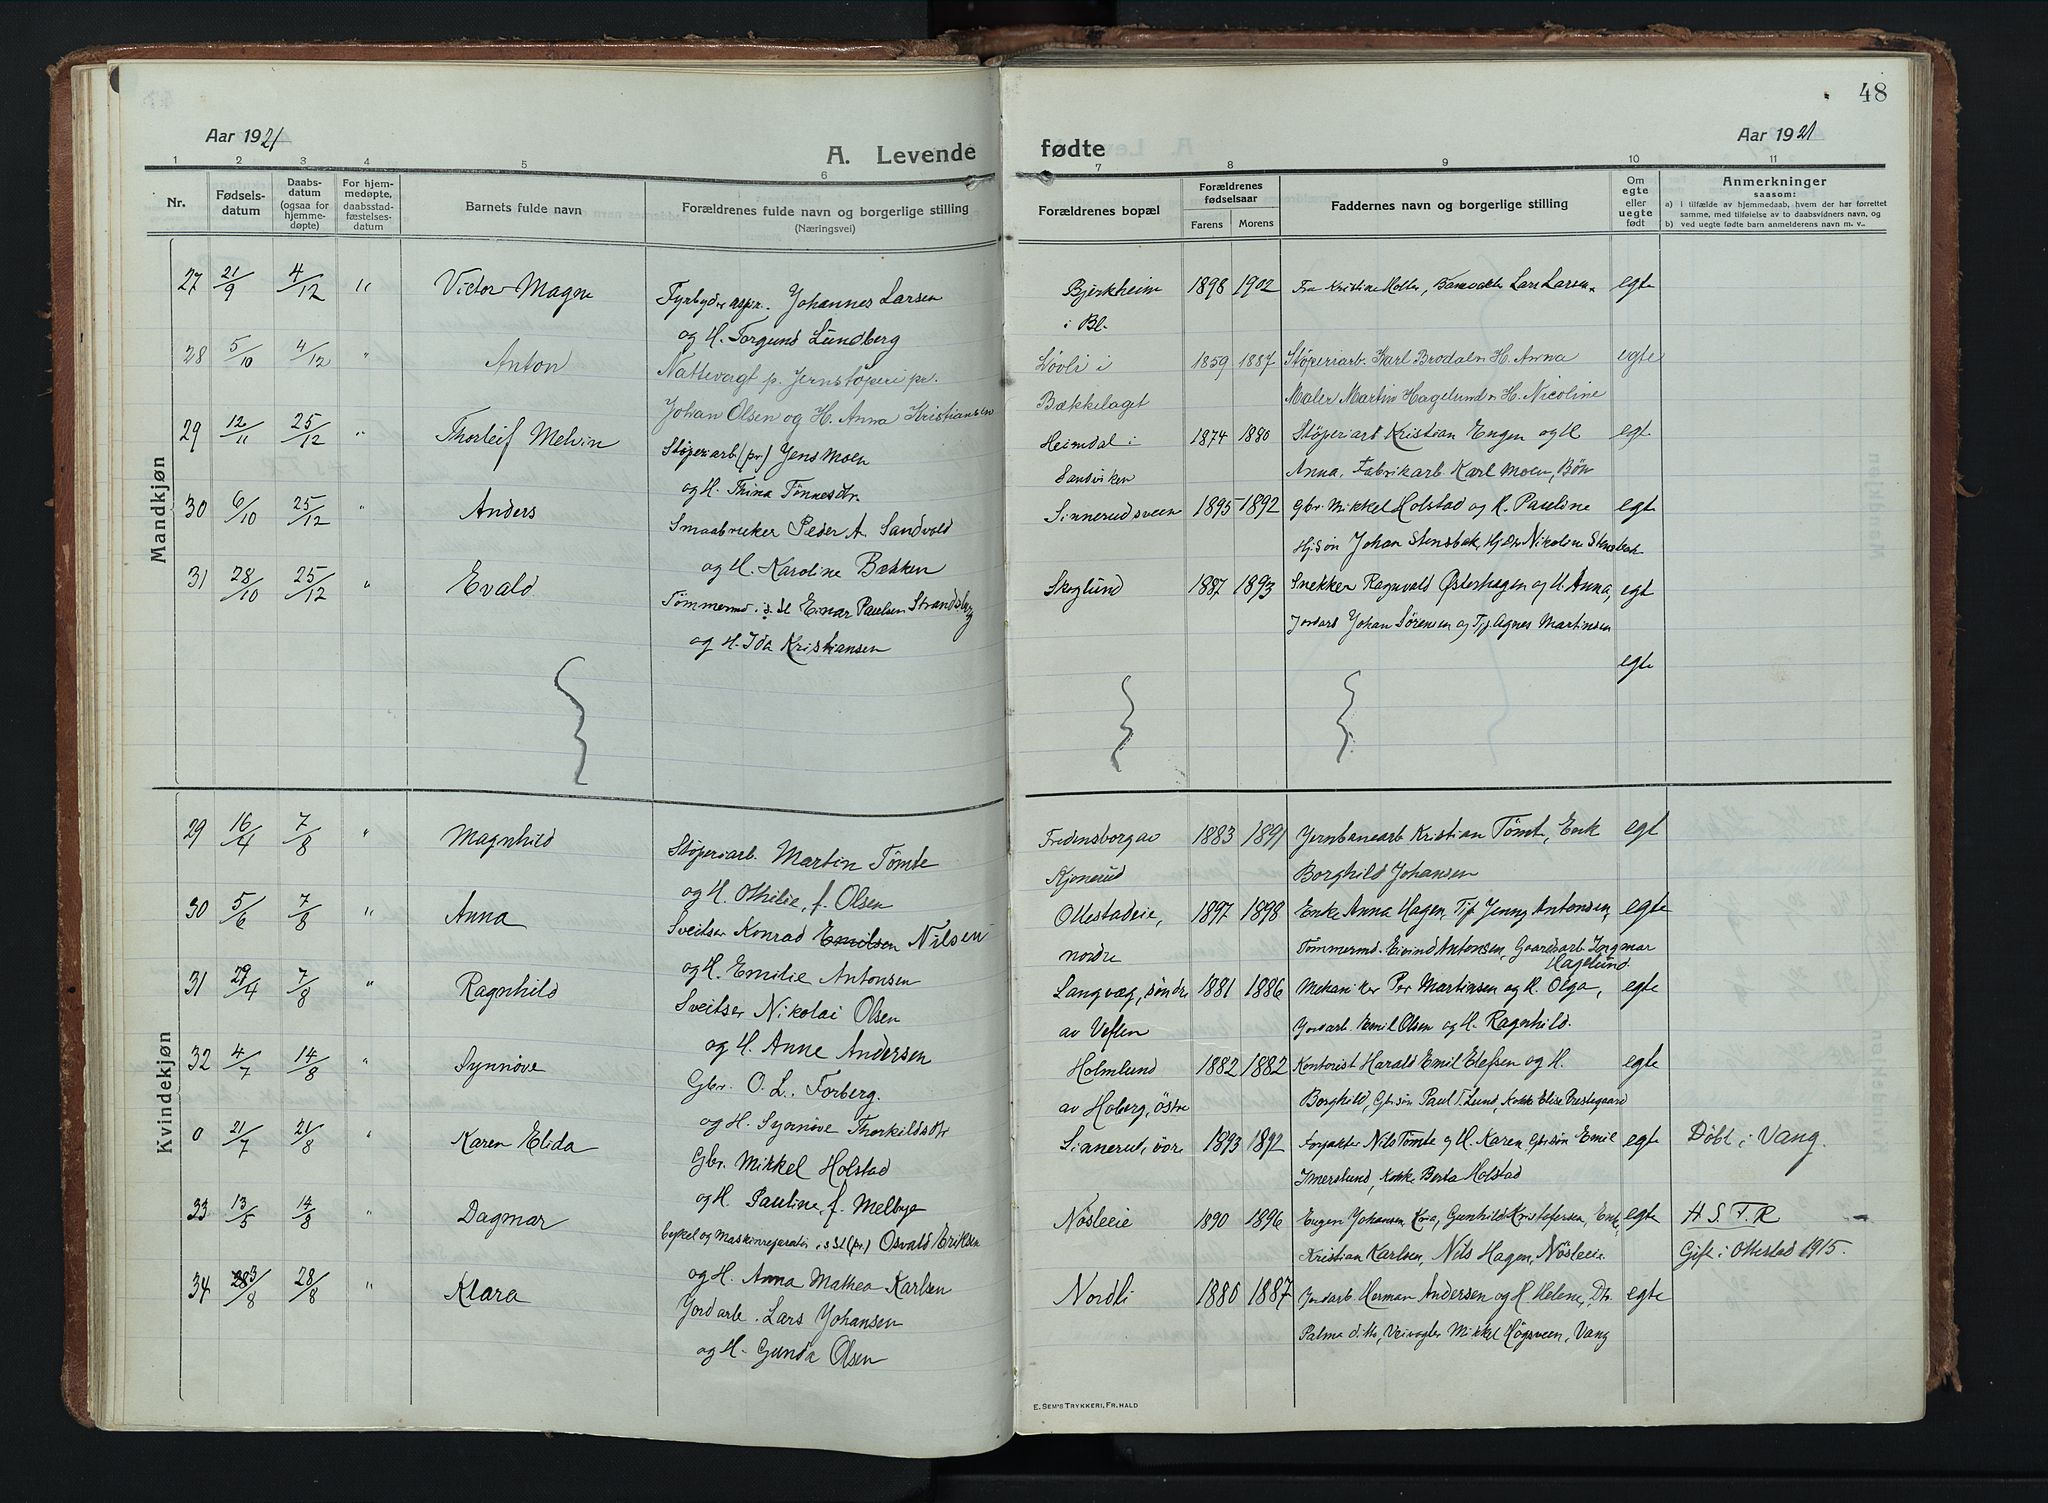 48
Aar 1921
Aar 1921
A. Levende
fødte
1 2 3 4 5 6
7 8 9 10 11
Nr.
Fødsels-
datum
Daabs-
datum
(ogsaa for
hjemme-
døpte)
For hjem-
medøpte,
daabsstad-
fæstelses-
datum
Barnets fulde navn
Forældrenes fulde navn og borgerlige stilling
(Næringsvei)
Forældrenes bopæl
Forældrenes
fødselsaar
Farens Morens
Faddernes navn og borgerlige stilling
Om
egte
eller
uegte
født
Anmerkninger
saasom:
a) i tilfælde av hjemmedaab, hvem der har forrettet
samme, med tilføielse av to daabsvidners navn, og
b) ved uegte fødte barn anmelderens navn m. v..
Mandkjøn
27 21/9 4/12 " Victor Magne Fyrbyder aspr. Johannes Larsen
og H. Torgund Lundberg
Bjerkheim 1898 1902 Fru Kristine Holter, Banevakter Lars Larsen. egte
i Bl.
28 5/10 4/12 " Anton Nattevagt p. Jernstøperi pr.
Johan Olsen og H. Anna Kristiansen
Løvli i 1859 1887 Støperiarb. Karl Brodal n H. Anna egte
Bækkelaget Maler Martin Hagelund n H. Nicoline
29 12/11 25/12 " Thorleif Melvin Støperiarb (pr) Jens Moen
og H. Thina Tønnesdtr.
Heimdal i 1874 1880 Støperiarb Kristian Engen og H egt
Sandviken Anna, Fabrikarb. Karl Moen, Bøn
30 6/10 25/12 " Anders Smaabruker Peder A. Sandvold
og H. Karoline Bækken
Sinnerudsveen 1895 1892 Gbr. Mikkel Holstad og H. Pauline egte
Hj.søn Johan Stensbak, Hj.Dtr Nikoline Stensbak
31 28/10 25/12 " Evald Tømmermd. i s. st Einar Paulsen Strandsberg
og H. Ida Kristiansen
Skoglund 1887 1893 Snekker Ragnvald Østerhagen og H. Anna, egte
Jordarb Johan Sørensen og Tjp. Agnes Martinsen
egte
Kvindekjøn
29 16/4 7/8 " Magnhild Støperiarb. Martin Tømte
og H. Othilie, f. Olsen
Fredensborg av 1883 1891 Jernbanearb Kristian Tømt, Enk egt
Kjonerud Borghild Johansen
30 5/6 7/8 " Anna Sveitser Konrad Emilsen Nilsen
og H. Emilie Antonsen
Ottestadeie, 1897 1898 Enke Anna Hagen, Tjp. Jenny Antonsen, egte
nordre Tømmermd. Eivind Antonsen, Gaardsarb Ingmar
Hagelund.
31 29/4 7/8 " Ragnhild Sveitser Nikolai Olsen
og H. Anne Andersen
Langvæg, søndre 1881 1886 Mekaniker Per Martinsen og H. Olga, egte
av Veflen Jordarb. Emil Olsen og H. Ragnhild.
32 4/7 14/8 " Synnøve Gbr. O. L. Forberg.
og H. Synnøve Thorkildsdtr
Holmlund 1882 1882 Kontorist Harald Emil Elefsen og H. egte
av Hoberg, østre Borghild, Gbr.søn Paul T. Lund, Kokke Elise Prestegaard
0 21/7 21/8 " Karen Elida Gbr. Mikkel Holstad
og H. Pauline, f. Melbye
Sinnerud, øvre 1893 1892 Forpakter Nils Tømte og H. Karen, Gbr.søn Emil egte Døbt i Vang.
Imerslund, Kokke Berta Holstad
33 13/5 14/8 " Dagmar Cykel og Maskinreparatør i s. st (pr.) Osvald Eriksen
og H. Anna Mathea Karlsen
Nøsleeie 1890 1896 Eugen Johansen Kria, Gunhild Kristofersen, Enk. egte H. S. T. R
Kristian Karlsen, Nils Hagen, Nøsleeie Gift i Ottestad 1915.
34 3/8 28/8 " Klara Jordarb. Lars Johansen
og H. Gunda Olsen
Nordli 1886 1887 Jordarb. Herman Andersen og H Helene, Dtr. egte
Palma ditto, Veivogter Mikkel Høgsveen, Vang
E. SEM'S TRYKKERI, FR. HALD